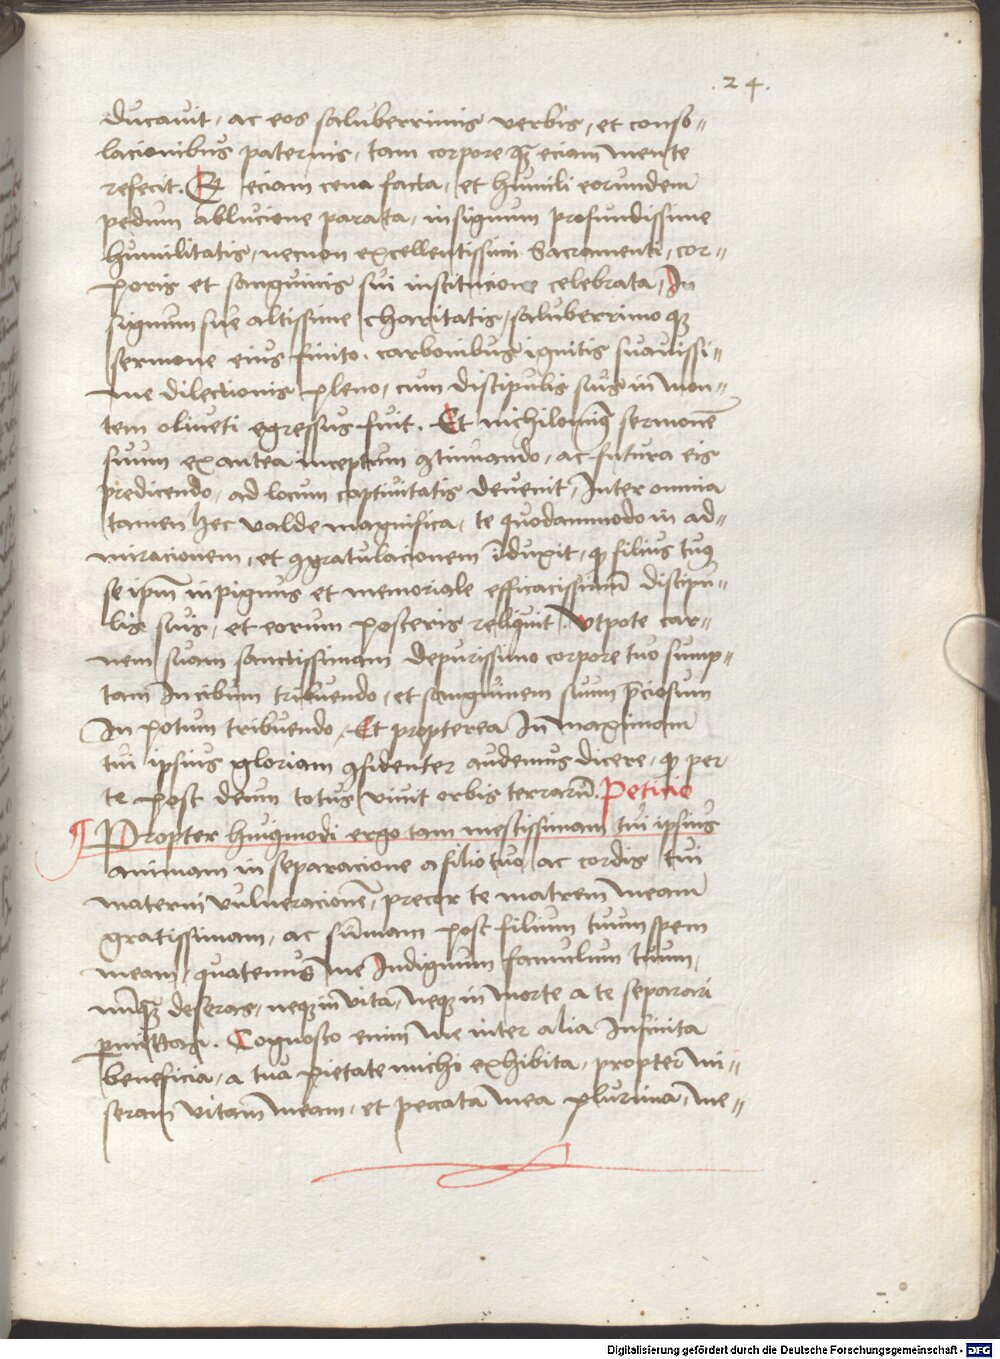 .24.
ducauit, ac eos saluberrimis verbis, et conso„
lacionibus paternis, tam corpore qꝫ eciam mente
refecit. Et eciam cena facta, et humili eorundem
pedum ablucione parata, in signum profundissime
humilitatis, necnon excellentissimi Sacramenti, cor„
poris et sanguinis sui institucione celebrata, In
signum sue altissime charitatis, saluberrimo qꝫ
sermone eius finito, carbonibus ignitis suauissi„
me dilectionis pleno, cum discipulis suis in Mon„
tem oliueti egressus fuit. Et nichilominꝰ sermonē
suum ex antea inceptum ꝯtinuando, ac futura eis
predicendo, ad locum captiuitatis deuenit, Inter omnia
tamen hec valde magnifica, te quodammodo in ad„
miracionem, et ꝯgratulacionem īduxit, ꝙ filius tuꝰ
se ipm̄ in pignus et memoriale efficacissimū discipu„
lis suis, et eorum posteris reliquit, Vtpote car„
nem suam sanctissimam de purissimo corpore tuo sump„
tam In cibum tribuendo, et sanguinem suum p̄ciosum
In potum tribuendo, Et propterea In Maximam
tui ipsius gloriam ꝯfidenter audemus dicere, ꝙ per
te post deum totus viuit orbis terrarū. Peticio
¶ Propter huiꝰmodi ergo tam mestissimam tui ipsius
animam in separacione a filio tuo, ac cordis tui
materni vulneracionē, precor te matrem meam
gratissimam, ac sūmam post filium tuum spem
meam, quatenus me Indignum famulum tuum,
nūqꝫ deseras, neqꝫ in vita, neqꝫ in morte a te separari
ꝑmittas. Cognosco enim me inter alia Infinita
beneficia, a tua pietate michi exhibita, propter mi„
seram vitam meam, et peccata mea plurima, me„
Digitalisierung gefördert durch die Deutsche Forschungsgemeinschaft - DFG